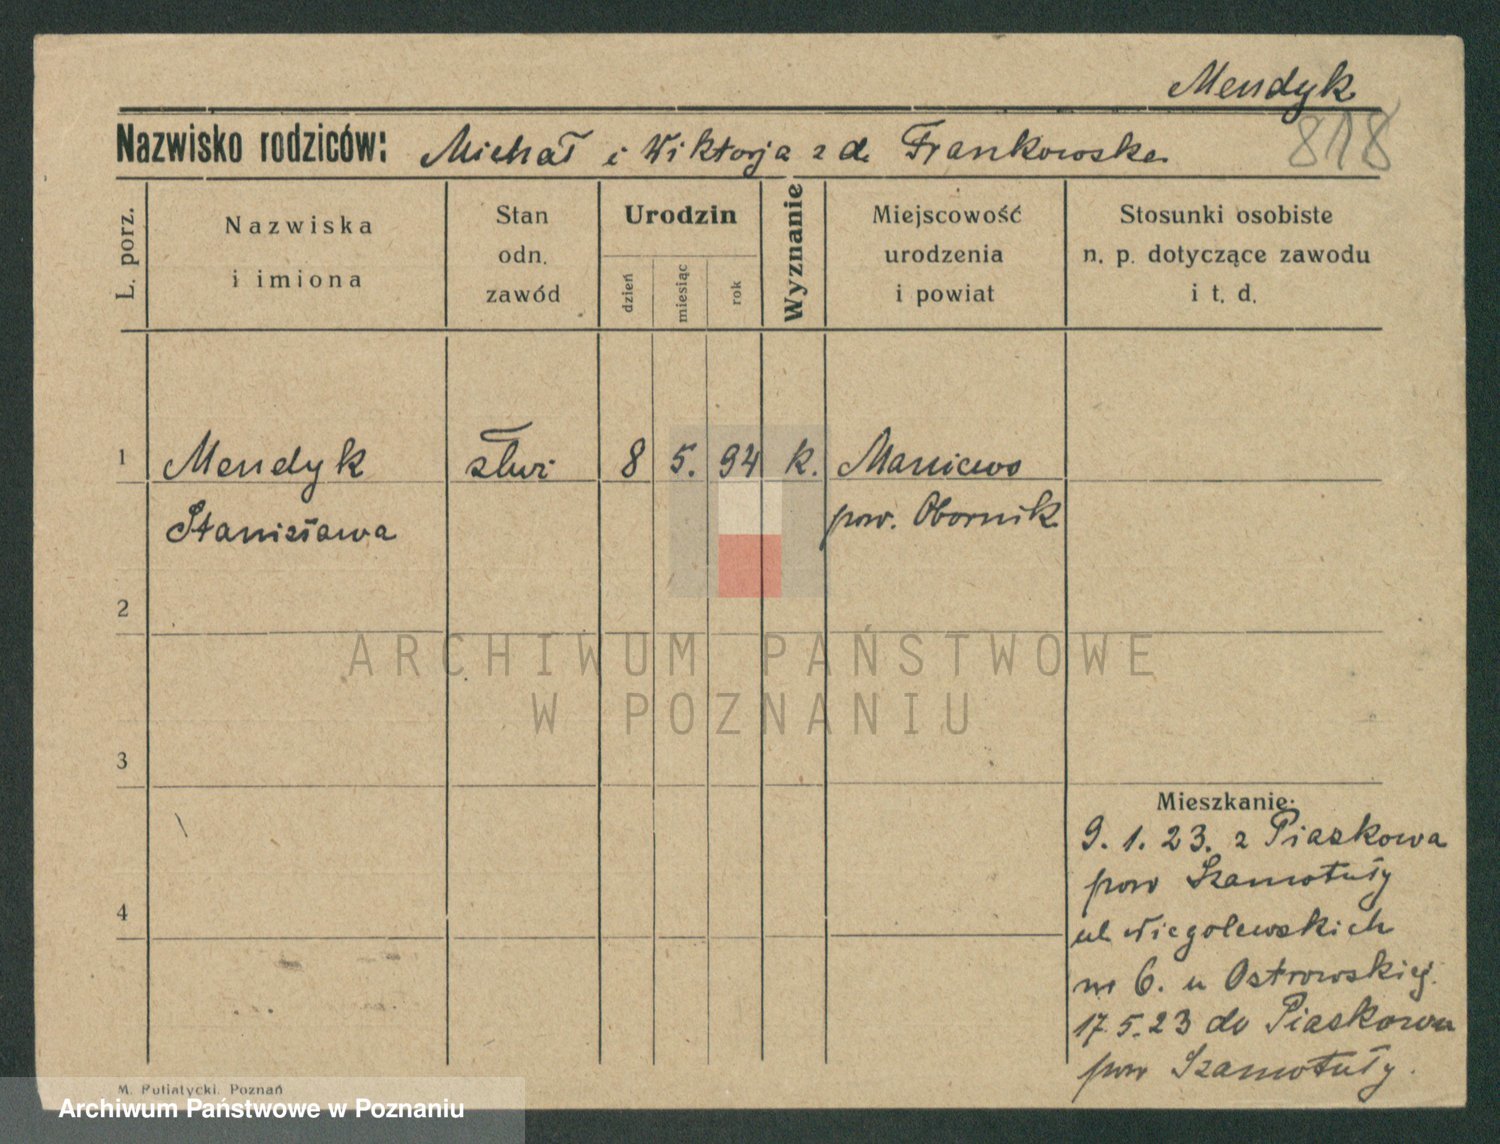 Mendyk
818
Nazwisko rodziców: Michał i Wiktorja z d. Frankowska
L. porz.
Nazwiska
i imiona
Stan
odn.
zawód
Urodzin
dzień
miesiąc
rok
Wyznanie
Miejscowość
urodzenia
i powiat
Stosunki osobiste
n. p. dotyczące zawodu
i t. d.
1 Mendyk służ 8 5. 94 k. Maniewo
Stanisława pow. Obornik
2
ARCHIWUM PAŃSTWOWE
W POZNANIU
3
Mieszkanie:
9. 1. 23. z Piaskowa
pow Szamotuły
4
ul Niegolewskich
nr 6. u Ostrowskiej.
17.5.23 do Piaskowa
pow Szamotuły.
M. Putiatycki, Poznań
Archiwum Państwowe w Poznaniu